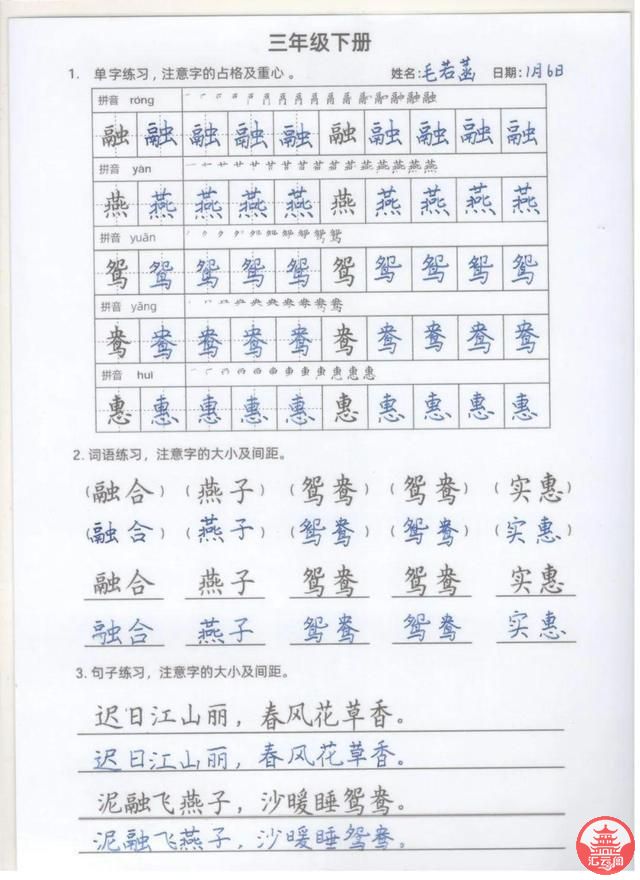 三年级下册
1. 单字练习，注意字的占格及重心。 姓名:毛若菡 日期:1月6日
拼音 róng
融融融融融融融融融融
拼音 yàn
燕燕燕燕燕燕燕燕燕燕
拼音 yuān
鸳鸳鸳鸳鸳鸳鸳鸳鸳鸳
拼音 yāng
鸯鸯鸯鸯鸯鸯鸯鸯鸯鸯
拼音 huì
惠惠惠惠惠惠惠惠惠惠
2. 词语练习，注意字的大小及间距。
（融合）（燕子）（鸳鸯）（鸳鸯）（实惠）
（融合）（燕子）（鸳鸯）（鸳鸯）（实惠）
融合 燕子 鸳鸯 鸳鸯 实惠
融合 燕子 鸳鸯 鸳鸯 实惠
3. 句子练习，注意字的大小及间距。
迟日江山丽，春风花草香。
迟日江山丽，春风花草香。
泥融飞燕子，沙暖睡鸳鸯。
泥融飞燕子，沙暖睡鸳鸯。
汇云阁